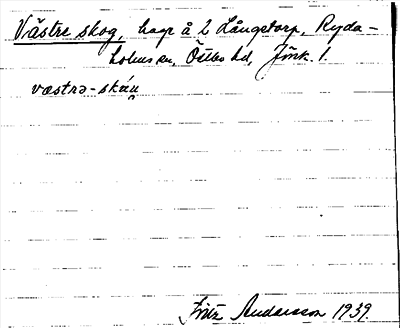 Västre skog, hage å 2 Långstorp, Ryda-
holms sn, Östbo hd, Jönk. l.
væstrə-skáu̯
Fritz Andersson 1939.